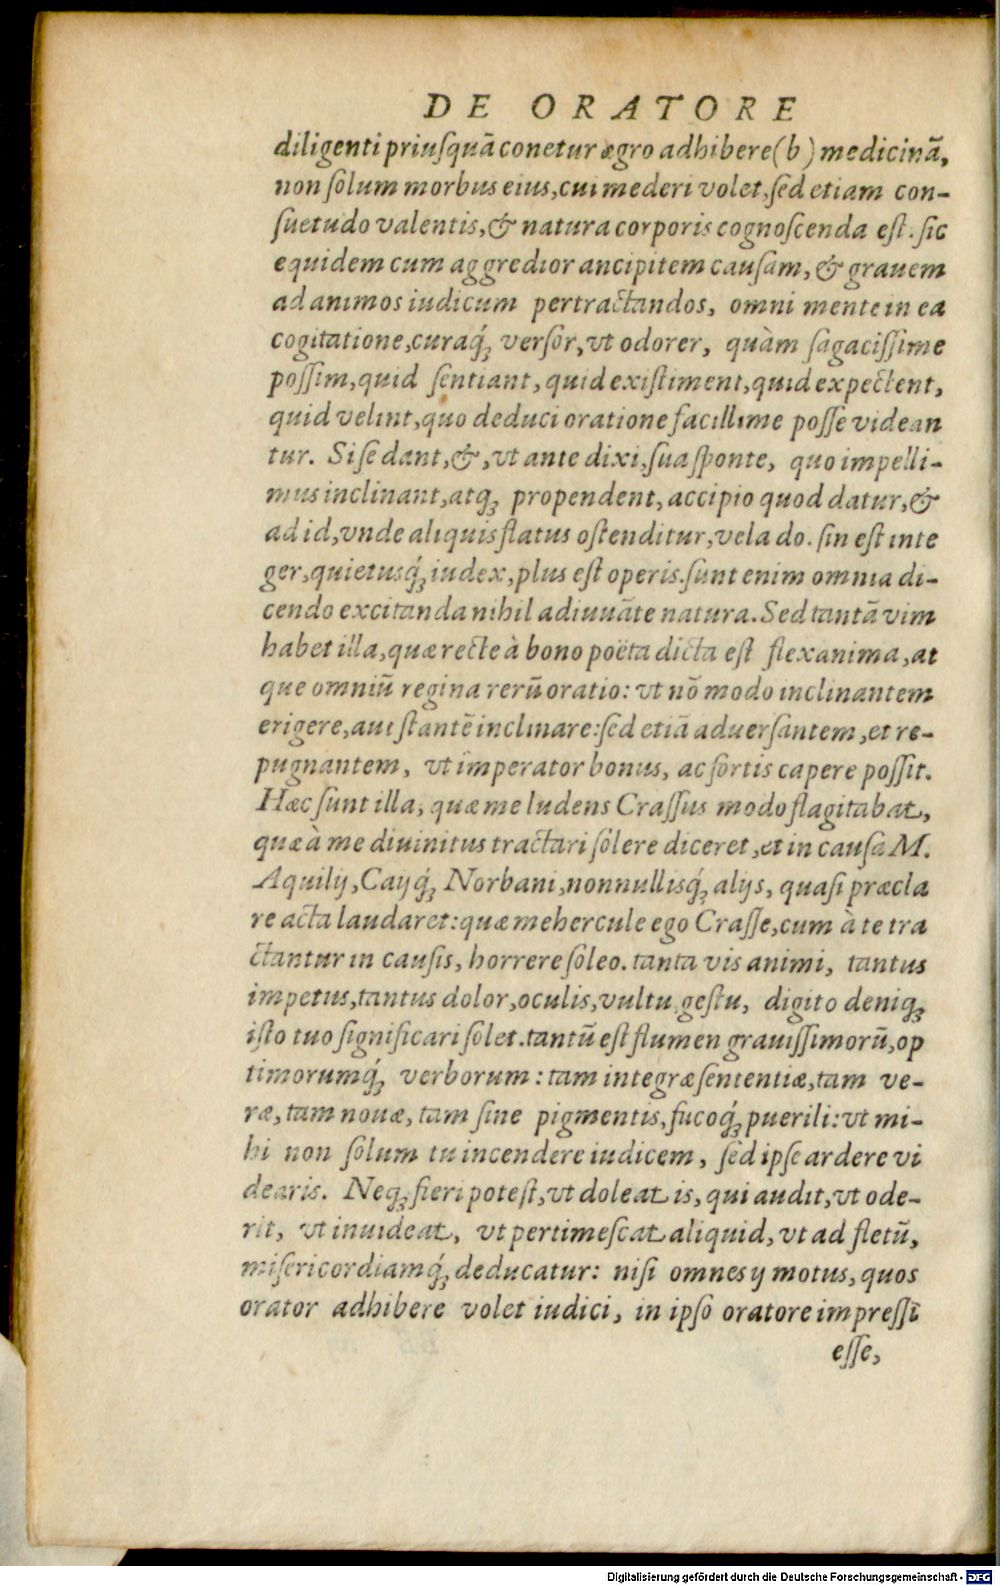 DE ORATORE
diligenti priusquā conetur ægro adhibere(b) medicinā,
non solum morbus eius, cui mederi volet, sed etiam con-
suetudo valentis, & natura corporis cognoscenda est. sic
equidem cum aggredior ancipitem causam, & grauem
ad animos iudicum pertractandos, omni mente in ea
cogitatione, curaq́; versor, vt odorer, quàm sagacissime
possim, quid sentiant, quid existiment, quid expectent,
quid velint, quo deduci oratione facillime posse videan
tur. Si se dant, &, vt ante dixi, sua sponte, quo impelli-
mus inclinant, atq; propendent, accipio quod datur, &
ad id, vnde aliquis flatus ostenditur, vela do. sin est inte
ger, quietusq́; iudex, plus est operis. sunt enim omnia di-
cendo excitanda nihil adiuuāte natura. Sed tantā vim
habet illa, quæ recte à bono poëta dicta est flexanima, at
que omniū regina rerū oratio: vt nō modo inclinantem
erigere, aut stantē inclinare: sed etiā aduersantem, et re-
pugnantem, vt imperator bonus, ac fortis capere possit.
Hæc sunt illa, quæ me ludens Crassus modo flagitabat,
quæ à me diuinitus tractari solere diceret, et in causa M.
Aquilij, Caijq́; Norbani, nonnullisq́; alijs, quasi præcla
re acta laudaret: quæ mehercule ego Crasse, cum à te tra
ctantur in causis, horrere soleo. tanta vis animi, tantus
impetus, tantus dolor, oculis, vultu gestu, digito deniq;
isto tuo significari solet. tantū est flumen grauissimorū, op
timorumq́; verborum: tam integræ sententiæ, tam ve-
ræ, tam nouæ, tam sine pigmentis, fucoq́; puerili: vt mi-
hi non solum tu incendere iudicem, sed ipse ardere vi
dearis. Neq; fieri potest, vt doleat is, qui audit, vt ode-
rit, vt inuideat, vt pertimescat aliquid, vt ad fletū,
misericordiamq́; deducatur: nisi omnes ij motus, quos
orator adhibere volet iudici, in ipso oratore impressi
esse,
Digitalisierung gefördert durch die Deutsche Forschungsgemeinschaft - DFG